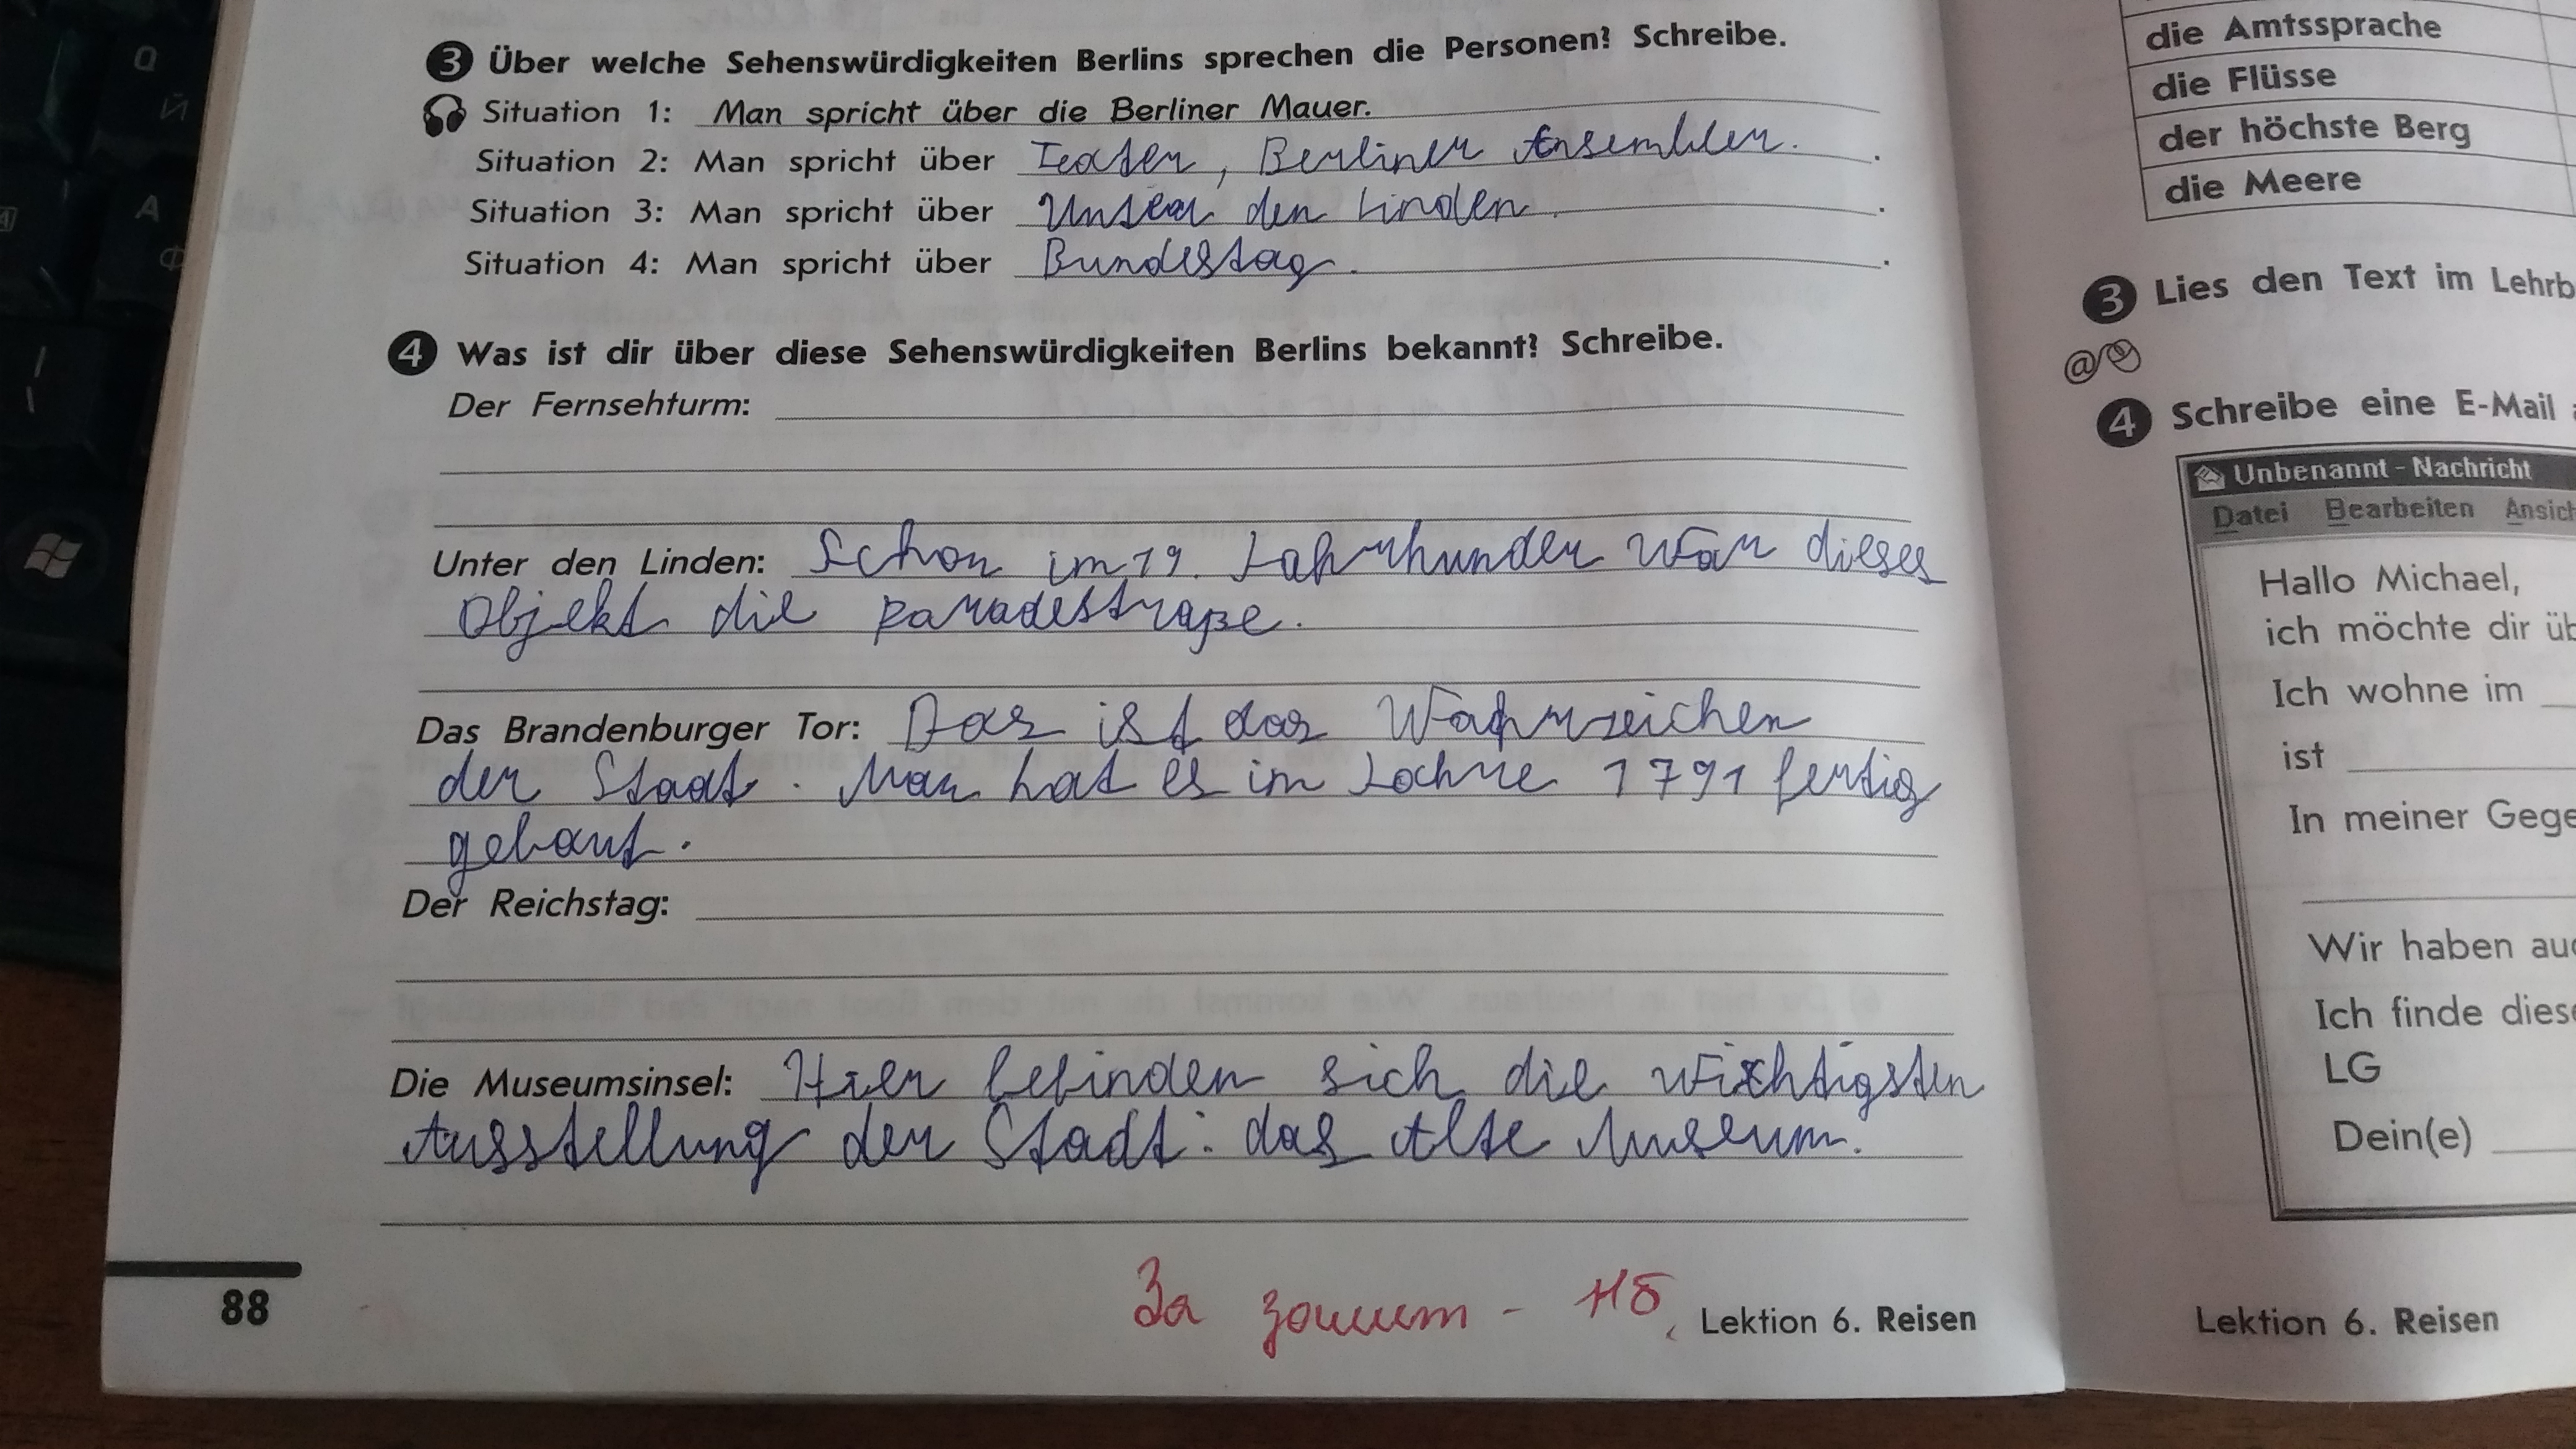 3 Über welche Sehenswürdigkeiten Berlins sprechen die Personen? Schreibe.
Situation 1: Man spricht über die Berliner Mauer.
Situation 2: Man spricht über Teater, Berliner Ansembler.
Situation 3: Man spricht über Unter den Linden.
Situation 4: Man spricht über Bundestag.
4 Was ist dir über diese Sehenswürdigkeiten Berlins bekannt? Schreibe.
Der Fernsehturm:
Unter den Linden: Schon im 19. Jahrhunder war dieses
Objekt die paradestraße.
Das Brandenburger Tor: Das ist das Wahrzeichen
der Stadt. Man hat es im Jahre 1791 fertig
gebaut.
Der Reichstag:
Die Museumsinsel: Hier befinden sich die wichtigsten
Ausstellung der Stadt: das Alte Museum.
88
За зошит - Нб
Lektion 6. Reisen
die Amtssprache
die Flüsse
der höchste Berg
die Meere
3 Lies den Text im Lehrb
4 Schreibe eine E-Mail
Unbenannt - Nachricht
Datei Bearbeiten Ansich
Hallo Michael,
ich möchte dir üb
Ich wohne im
ist
In meiner Gege
Wir haben auc
Ich finde diese
LG
Dein(e)
Lektion 6. Reisen
Q
Й
A
Ф